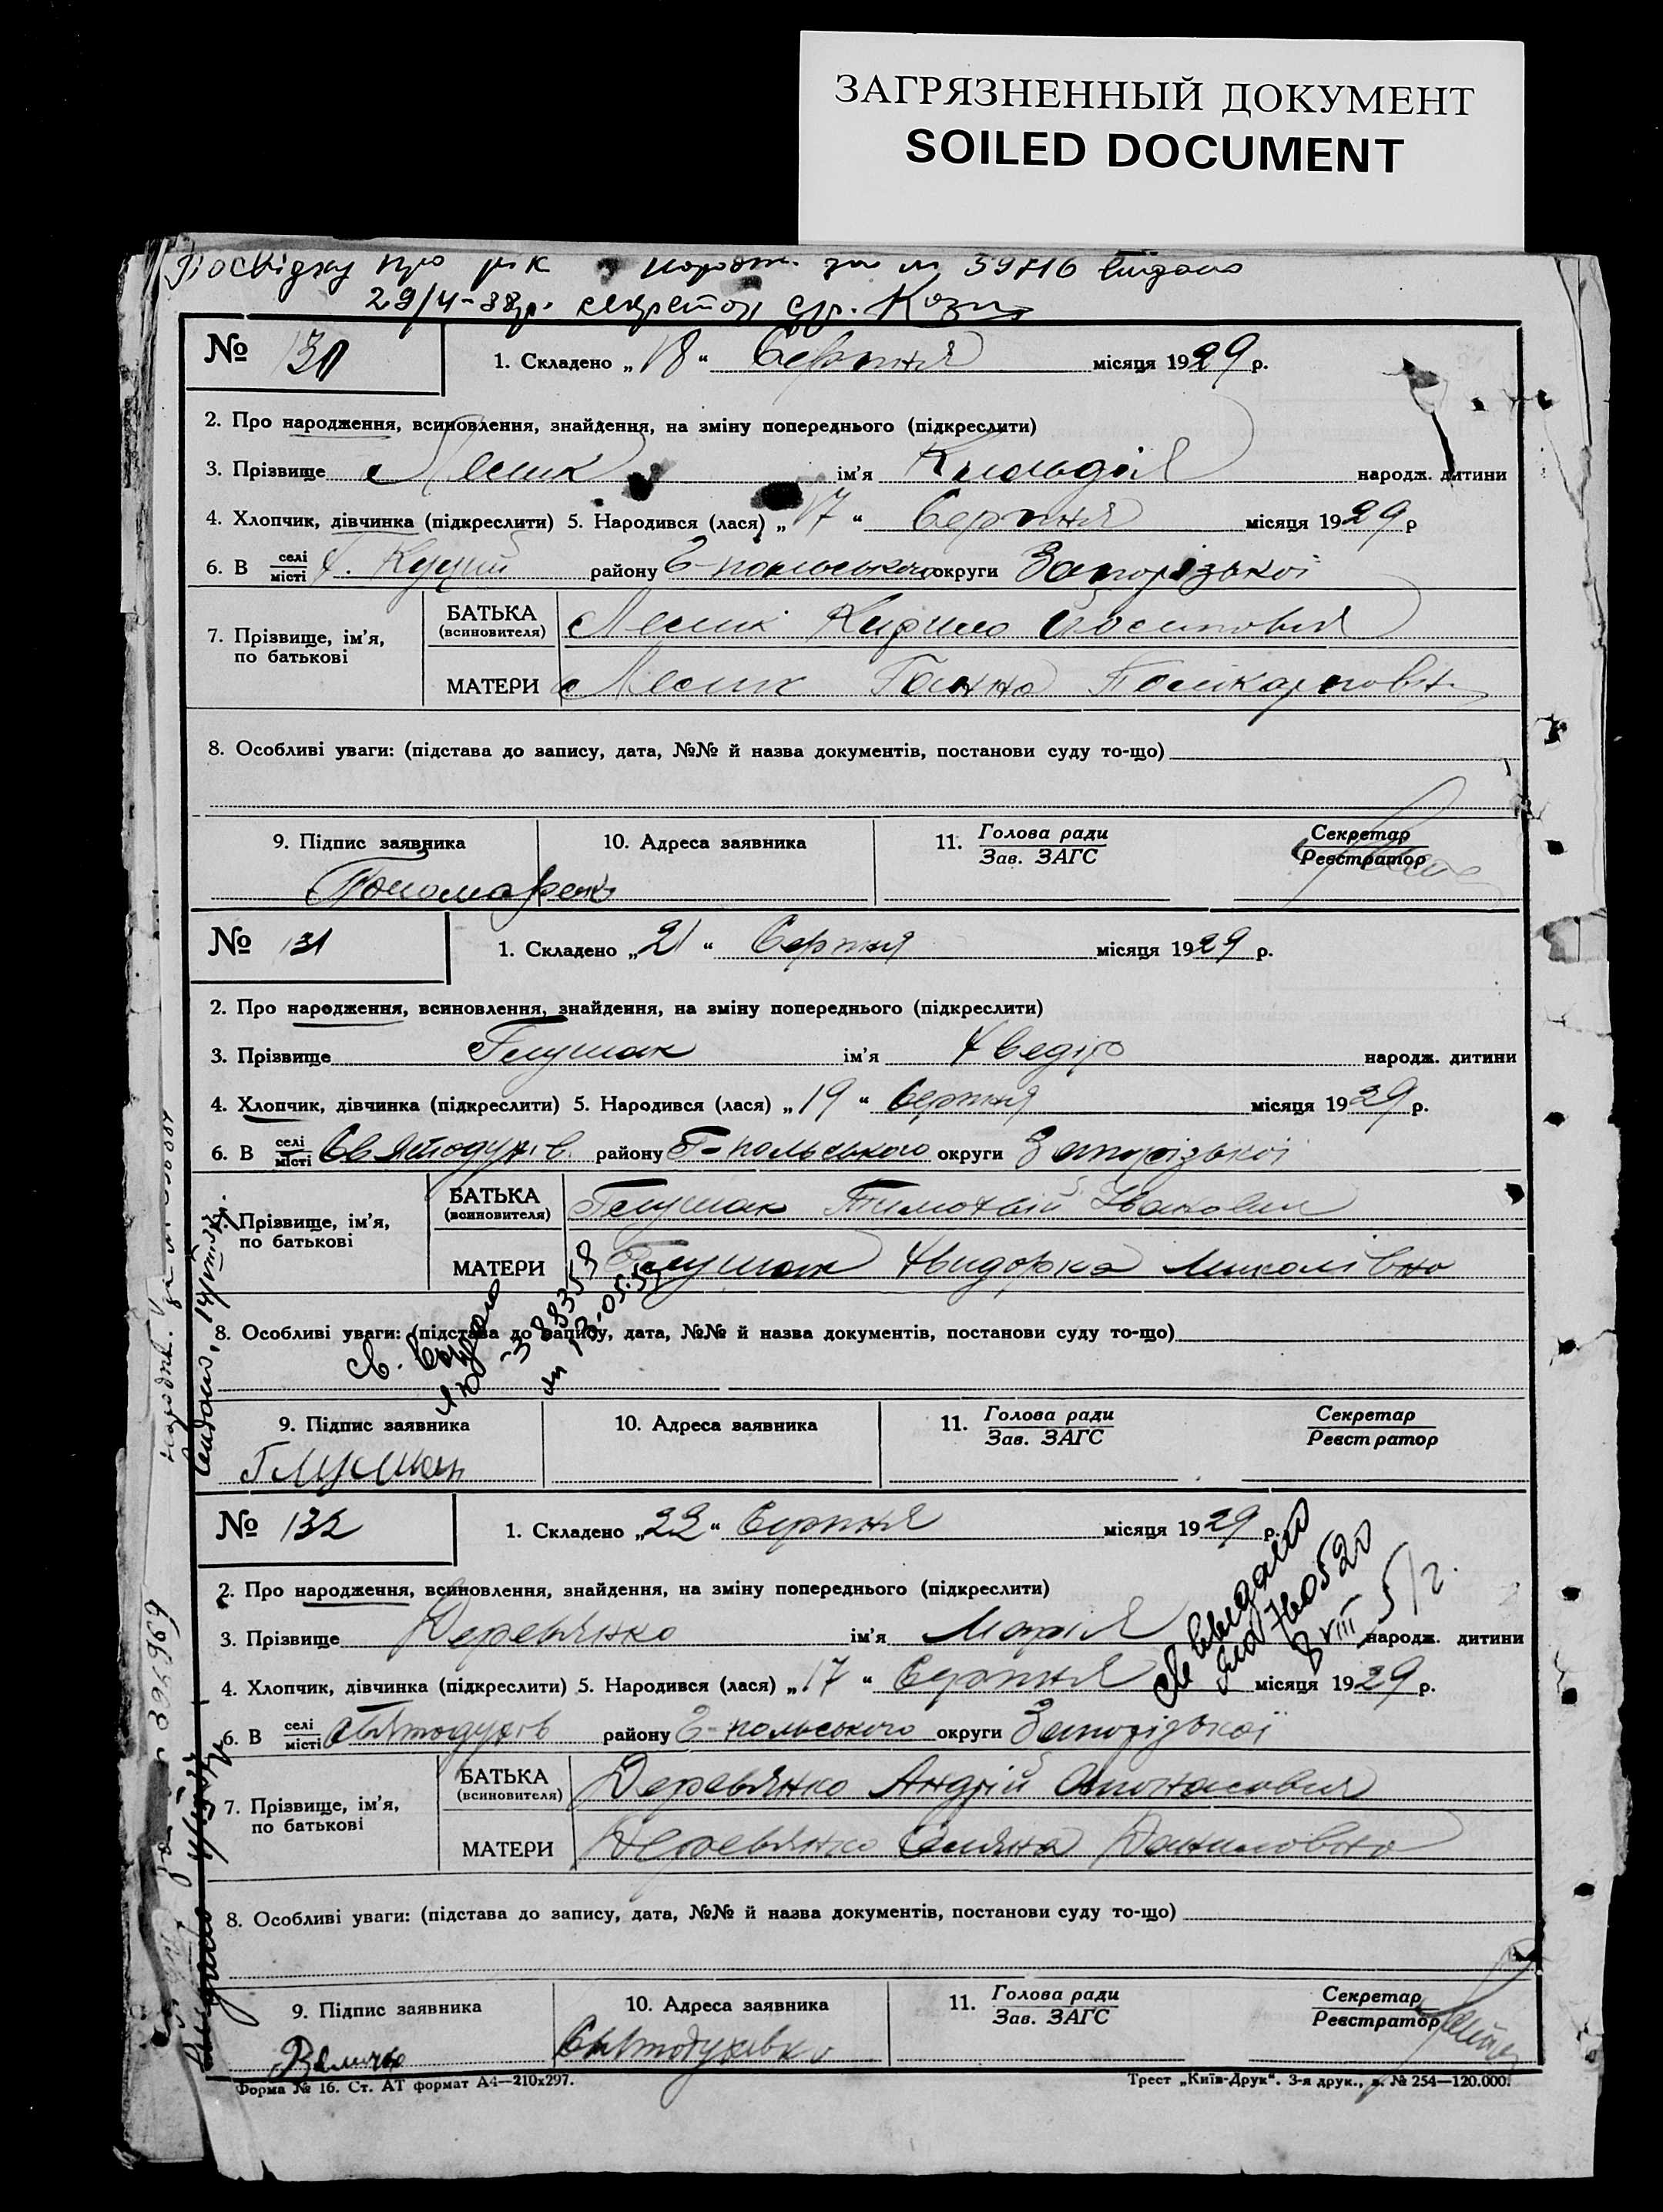 ЗАГРЯЗНЕННЫЙ ДОКУМЕНТ
SOILED DOCUMENT
Посвідку про рік народж. за № 39716 видано
29/4-38р. секретар
№ 130 1. Складено „18“ Серпня місяця 1929 р.
2. Про народження, всиновлення, знайдення, на зміну попереднього (підкреслити)
3. Прізвище Лесик ім’я Клавдія народж. дитини
4. Хлопчик, дівчинка (підкреслити) 5. Народився (лася) „17“ Серпня місяця 1929 р
6. В селі місті х. Куций району -польського округи Запорізької
7. Прізвище, ім’я, по батькові
БАТЬКА (всиновителя) Лесик Кирило Йосипович
МАТЕРИ Лесик Ганна Полікарповн
8. Особливі уваги: (підстава до запису, дата, №№ й назва документів, постанови суду то-що)
9. Підпис заявника 10. Адреса заявника 11. Голова ради Зав. ЗАГС Секретар Реєстратор
Пономаренко
№ 131 1. Складено „21“ Серпня місяця 1929 р.
2. Про народження, всиновлення, знайдення, на зміну попереднього (підкреслити)
3. Прізвище Глушак ім’я народж. дитини
4. Хлопчик, дівчинка (підкреслити) 5. Народився (лася) „19“ Серпня місяця 1929 р.
6. В селі місті Святодухів. району -польського округи Запорізької
7. Прізвище, ім’я, по батькові
БАТЬКА (всиновителя) Глушак Тимофій Іванович
МАТЕРИ Глушак Миколівна
8. Особливі уваги: (підстава до запису, дата, №№ й назва документів, постанови суду то-що)
9. Підпис заявника 10. Адреса заявника 11. Голова ради Зав. ЗАГС Секретар Реєстратор
Глушак
№ 132 1. Складено „22“ Серпня місяця 1929 р.
2. Про народження, всиновлення, знайдення, на зміну попереднього (підкреслити)
3. Прізвище Деревянко ім’я Марія народж. дитини
4. Хлопчик, дівчинка (підкреслити) 5. Народився (лася) „17“ Серпня місяця 1929 р.
6. В селі місті Святодухів району -польського округи Запорізької
7. Прізвище, ім’я, по батькові
БАТЬКА (всиновителя) Деревянко Андрій Опонасович
МАТЕРИ Деревянко Даниловна
8. Особливі уваги: (підстава до запису, дата, №№ й назва документів, постанови суду то-що)
9. Підпис заявника 10. Адреса заявника 11. Голова ради Зав. ЗАГС Секретар Реєстратор
Святодухівка
Форма № 16. Ст. АТ формат А4—210х297. Трест „Київ-Друк“. 3-я друк., з. № 254—120.000.